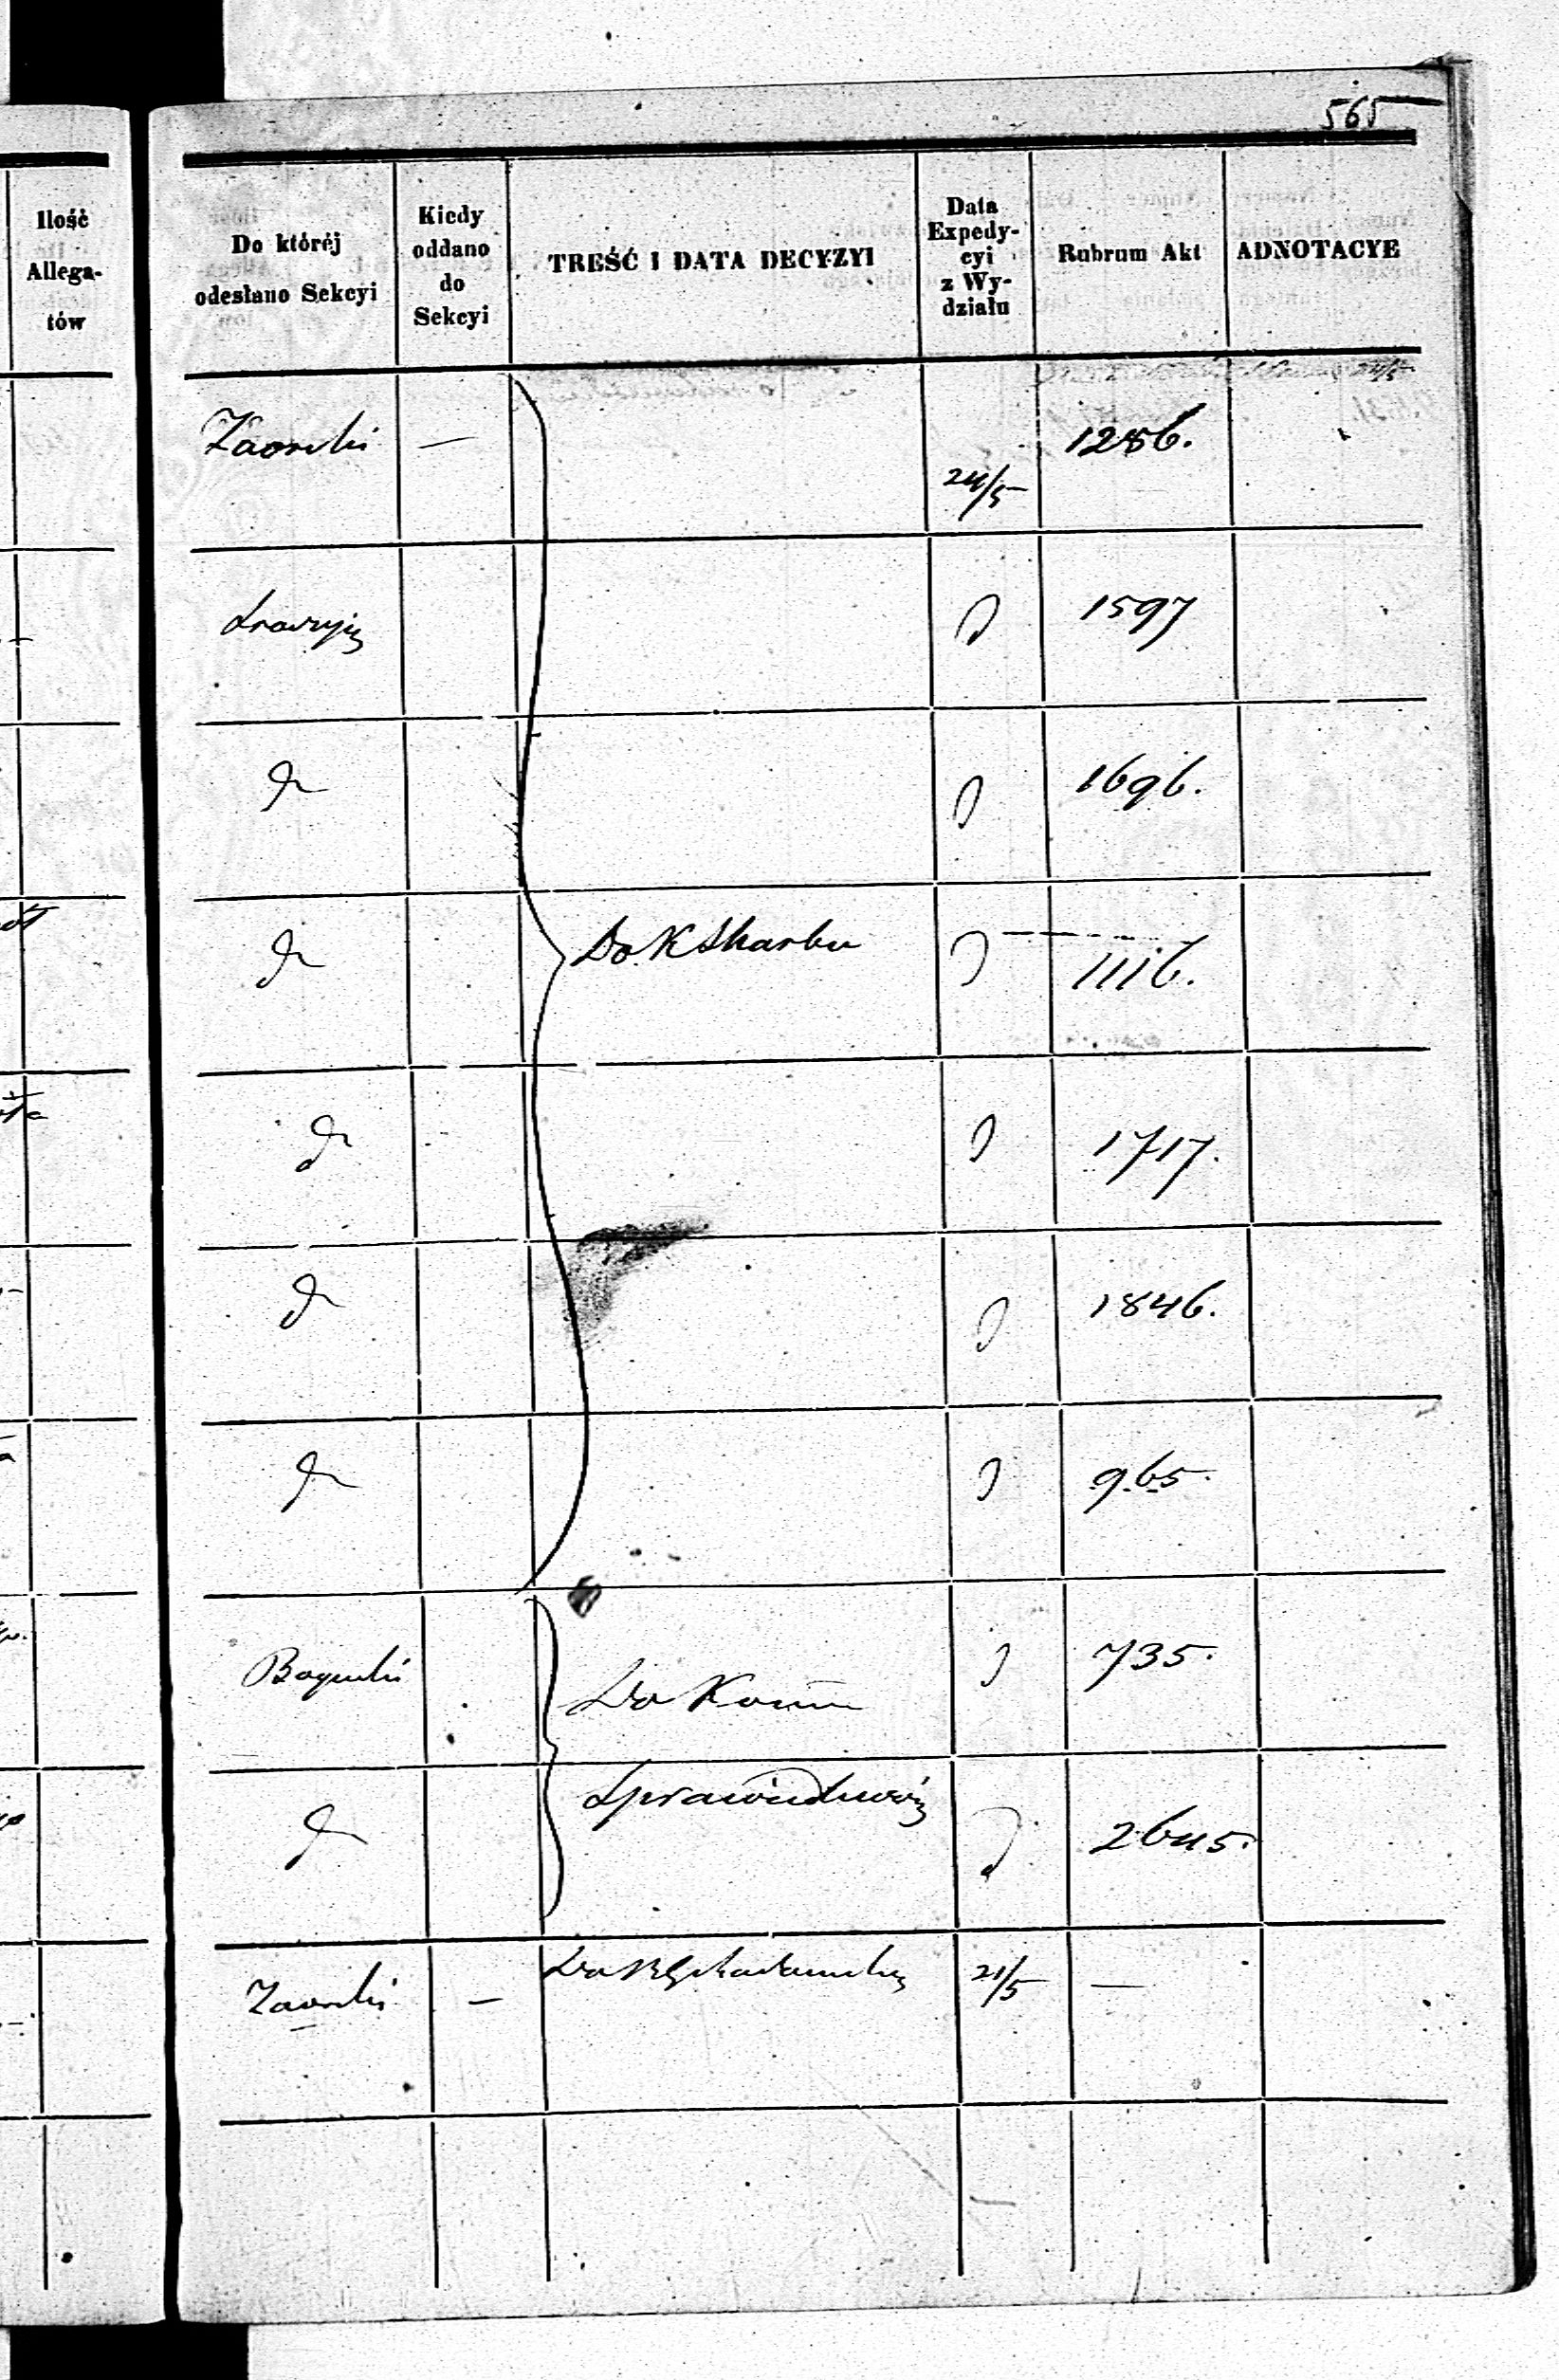 565
Ilość
Allega-
tów
Do któréj
odesłano Sekcyi
Kiedy
oddano
do
Sekcyi
TREŚĆ I DATA DECYZYI
Data
Expedy-
cyi
z Wy-
działu
Rubrum Akt
ADNOTACYE
Zaorski —
24/5
1286.
1597
dr
1696.
dr
Do K Skarbu
1116.
dr
1717.
dr
1846.
dr
965.
Bogucki
735.
Do Komm
Sprawiedliwości
2645.
Zaorski — 21/5 —